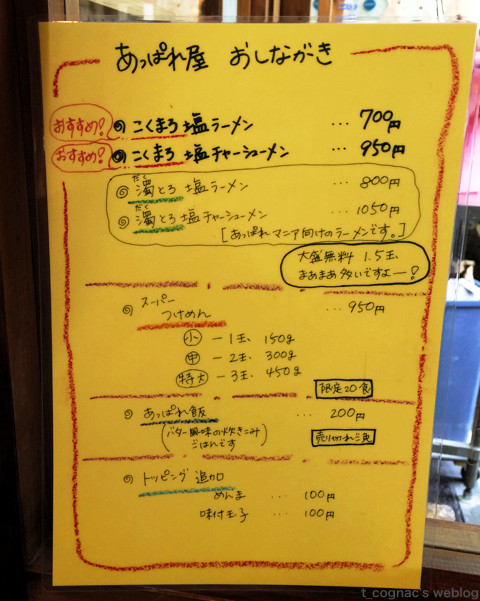 あっぱれ屋 おしながき
おすすめ! ◎ こくまろ 塩ラーメン ... 700円
おすすめ! ◎ こくまろ 塩チャーシューメン ... 950円
だく
◎ 濁とろ 塩ラーメン ... 800円
だく
◎ 濁とろ 塩チャーシューメン ... 1050円
[あっぱれマニア向けのラーメンです。]
大盛無料 1.5玉、
まあまあ多いですよー!
◎ スーパー ... 950円
つけめん
小 - 1玉、150g
中 - 2玉、300g
特大 - 3玉、450g
限定20食
◎ あっぱれ飯 ... 200円
(バター風味の炊きこみ
ごはんです)
売り切れ次
◎ トッピング 追加
めんま ... 100円
味付玉子 ... 100円
t_cognac's weblog